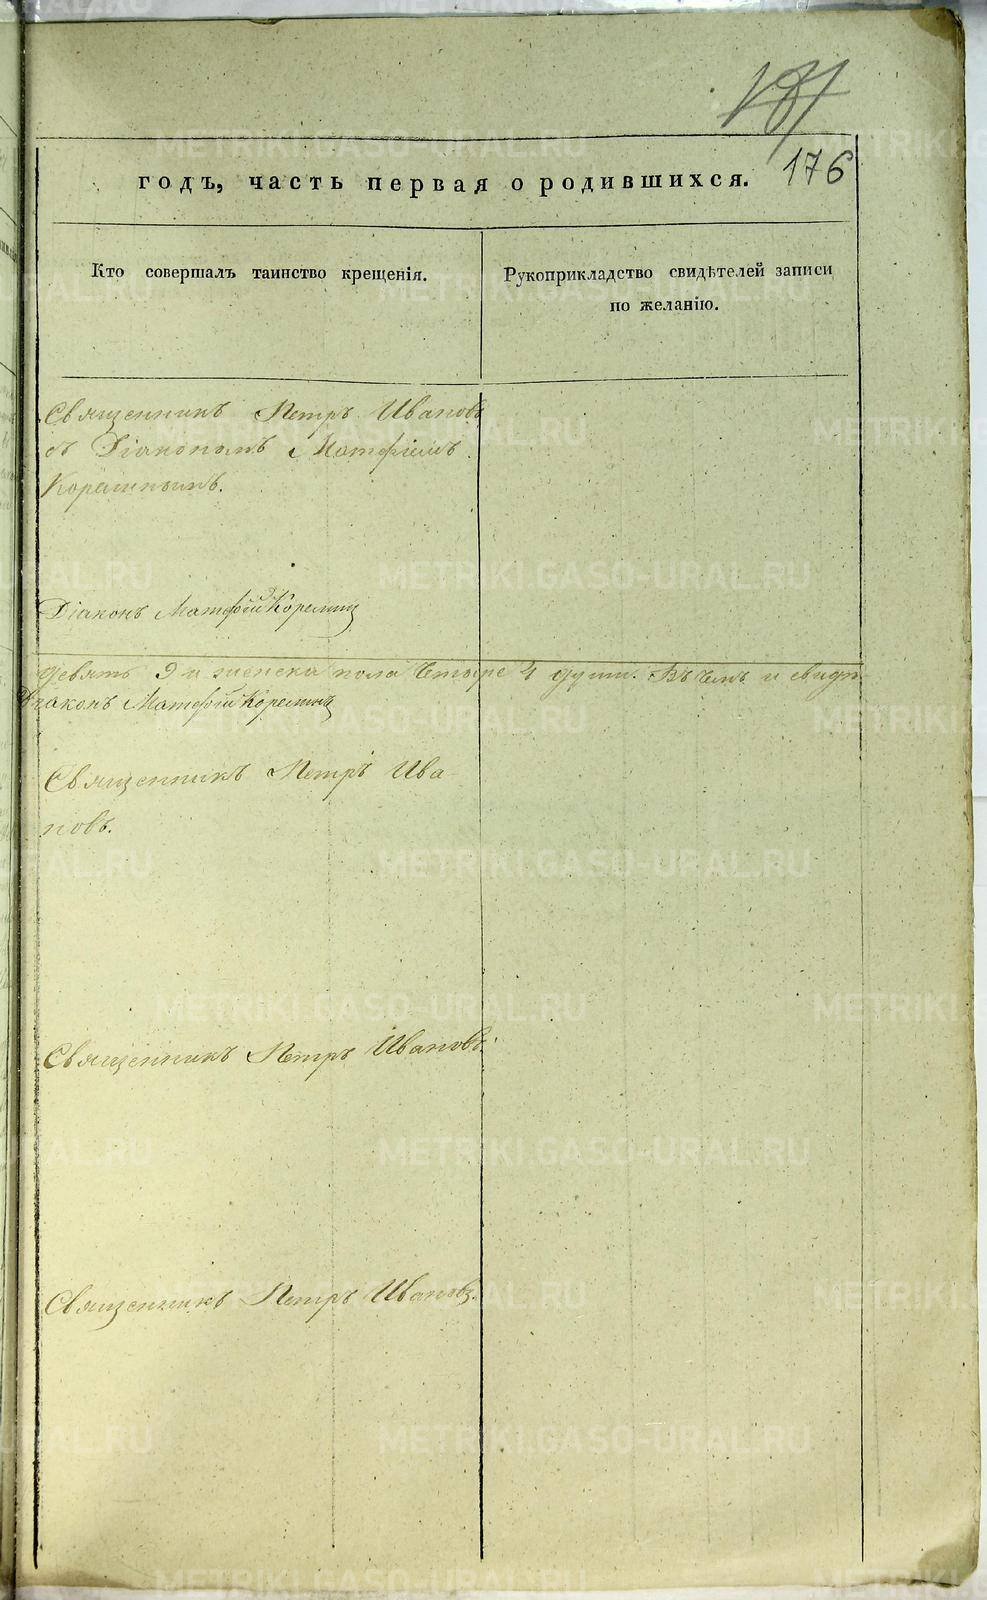 176
годъ, часть первая о родившихся.
Кто совершалъ таинство крещенія.
Рукоприкладство свидѣтелей записи
по желанію.
Священникъ Петръ Ивановъ
съ Діакономъ Матфіемъ
Корелинымъ.
Діаконъ Матфій Корелинъ
девять 9 и женска пола Четыре 4 души. Въ чемъ и свидѣ
Діаконъ Матфій Корелинъ
Священникъ Петръ Ива
новъ.
Священникъ Петръ Ивановъ.
Священникъ Петръ Ивановъ.
METRIKI.GASO-URAL.RU